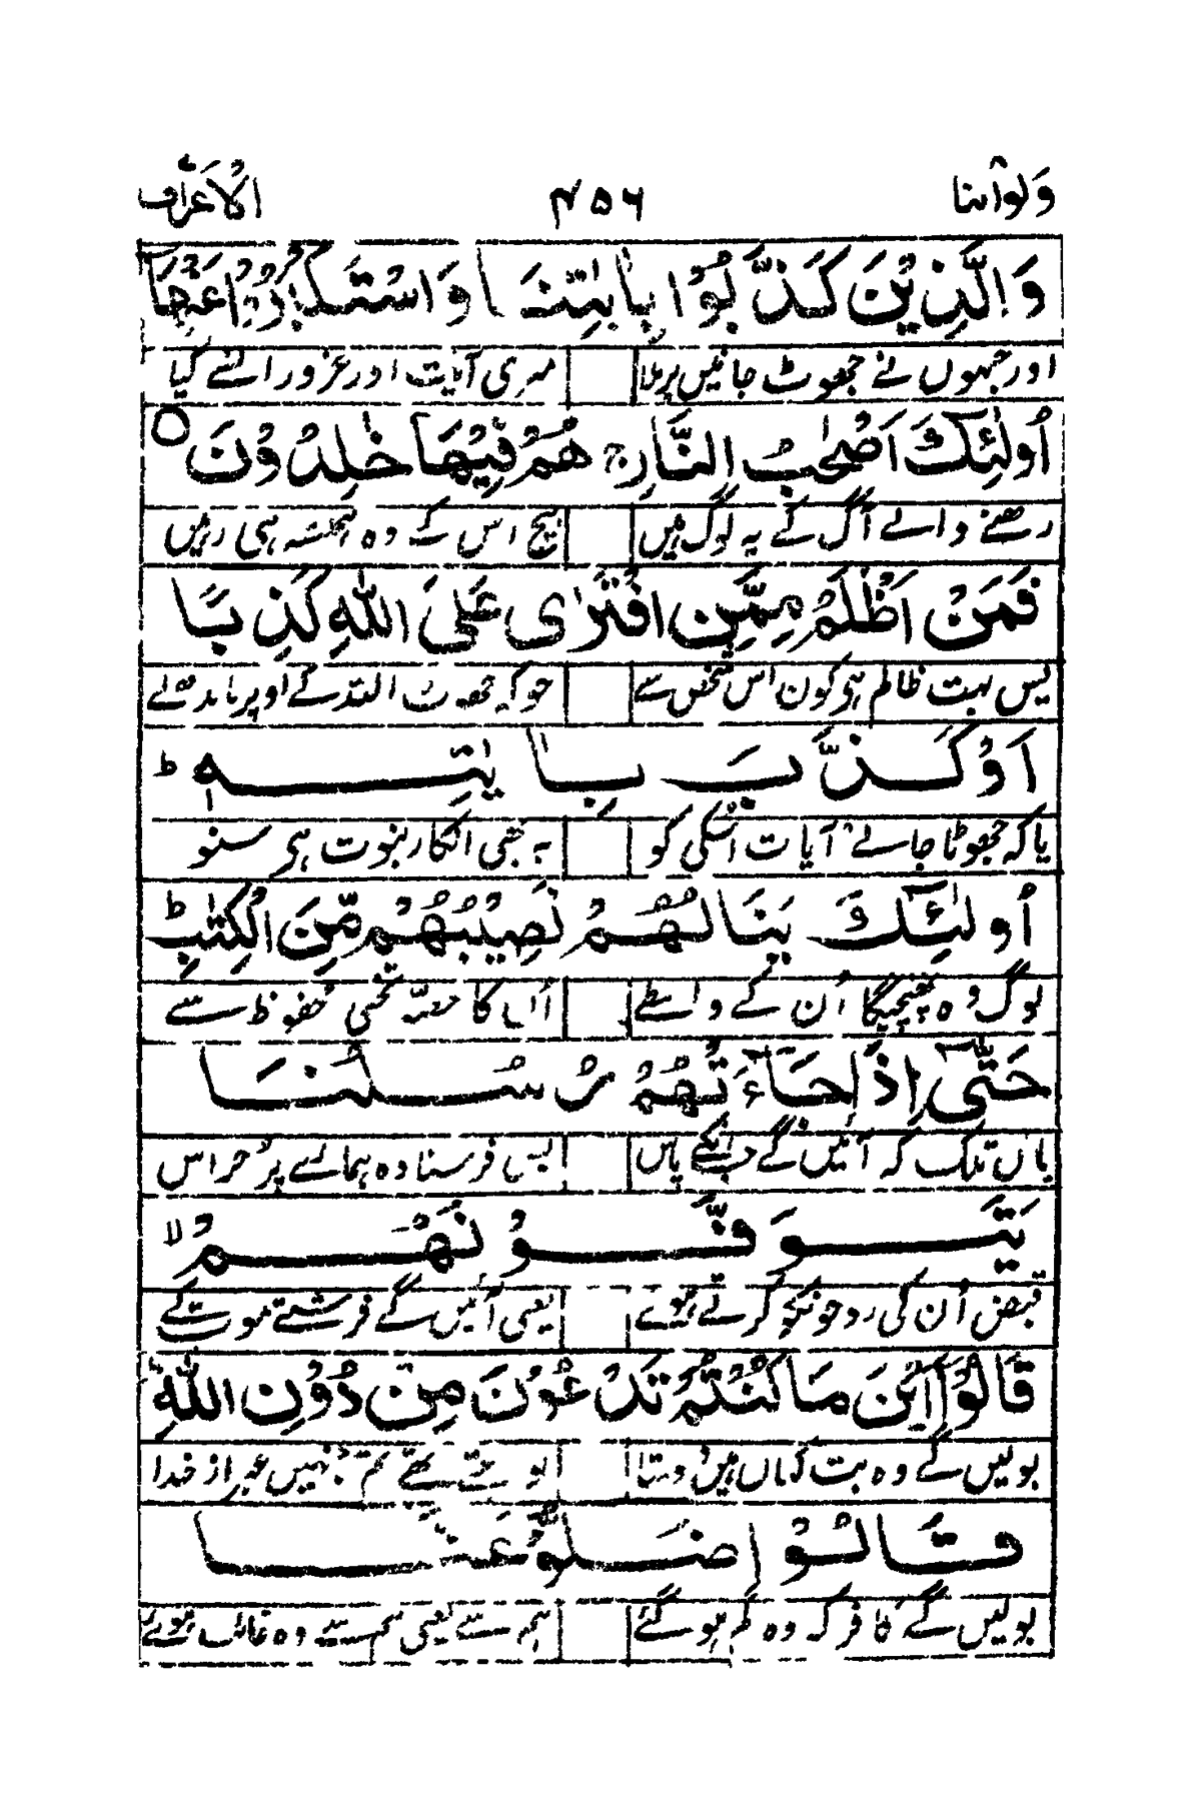 ولواننا ۴۵۶ الاعراف
وَالَّذِيْنَ كَذَّبُوْا بِاٰيٰتِنَا وَاسْتَكْبَرُوْا عَنْهَا
اور جنہوں نے جھوٹ جانیں برملا میری آیات اور غرور ان سے کیا
اُولٰٓئِكَ اَصْحٰبُ النَّارِ ج هُمْ فِيْهَا خٰلِدُوْنَ ○
رہنے والے آگ کے یہ لوگ ہیں بیچ اس کے وہ ہمیشہ ہی رہیں
فَمَنْ اَظْلَمُ مِمَّنِ افْتَرٰى عَلَى اللّٰهِ كَذِبًا
پس بہت ظالم ہی کون اس شخص سے جو کہ جھوٹ اللہ کے اوپر باندھے
اَوْ كَذَّبَ بِاٰيٰتِهٖ ط
یا کہ جھوٹا جانے آیات اسکی کو یہ بھی انکار نبوت ہی سنو
اُولٰٓئِكَ يَنَالُهُمْ نَصِيْبُهُمْ مِّنَ الْكِتٰبِ ط
لوگ وہ پہنچیگا اُن کے واسطے اُن کا حصہ محفوظ سے
حَتّٰٓى اِذَا جَآءَتْهُمْ رُسُلُنَا
یاں تلک کہ آئیں گے جب انکے پاس بس فرستادہ ہمارے پر حراس
يَتَوَفَّوْنَهُمْ لا
قبض اُن کی روحونکو کرتے ہوئے یعنی آئیں گے فرشتے موت کے
قَالُوْٓا اَيْنَ مَا كُنْتُمْ تَدْعُوْنَ مِنْ دُوْنِ اللّٰهِ ط
بولیں گے وہ بت کہاں ہیں پوجتے تھے تم جنہیں غیر از خدا
قَالُوْا ضَلُّوْا عَنَّا
بولیں گے کافر کہ وہ گم ہو گئے ہم سے یعنی ہم سے وہ غائب ہوئے